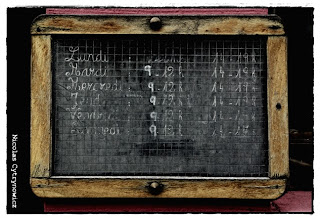 Lundi :
Mardi : 9 - 12h 14 - 19h
Mercredi : 9 - 12h 14 - 19h
Jeudi : 9 - 12h 14 - 19h
Vendredi : 9 - 12h 14 - 19h
Samedi : 9 - 12h 14 - 17h
Nicolas Cytrynowicz